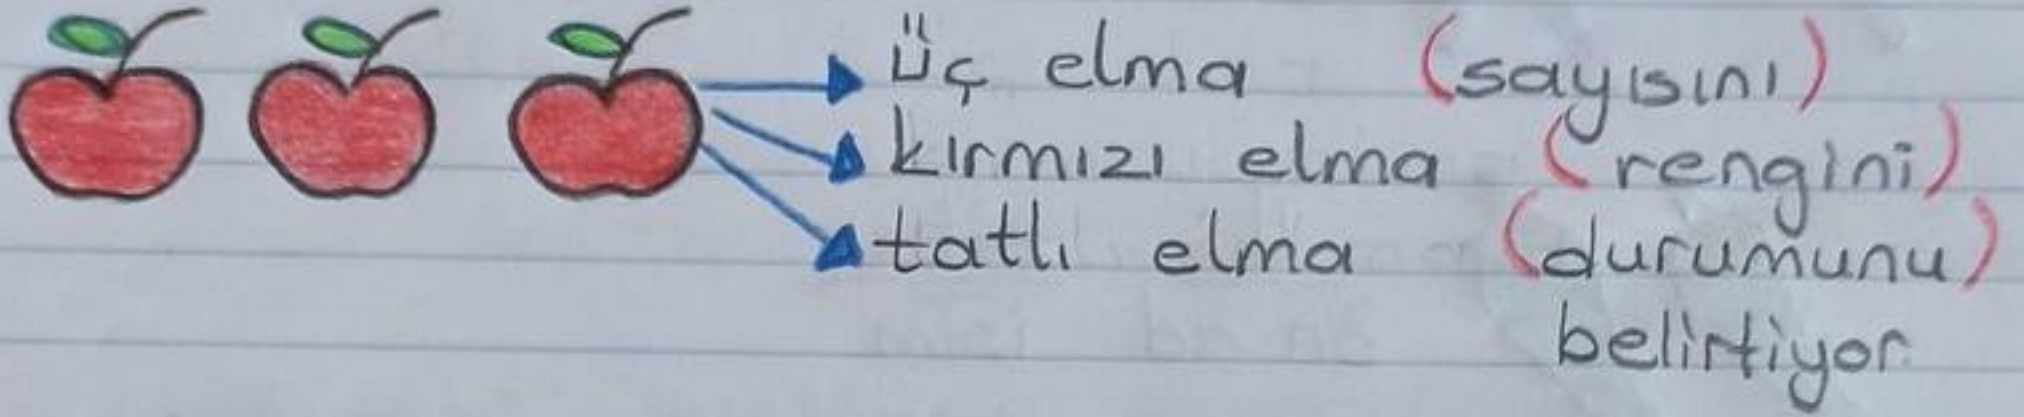 üç elma (sayısını)
kırmızı elma (rengini)
tatlı elma (durumunu)
belirtiyor